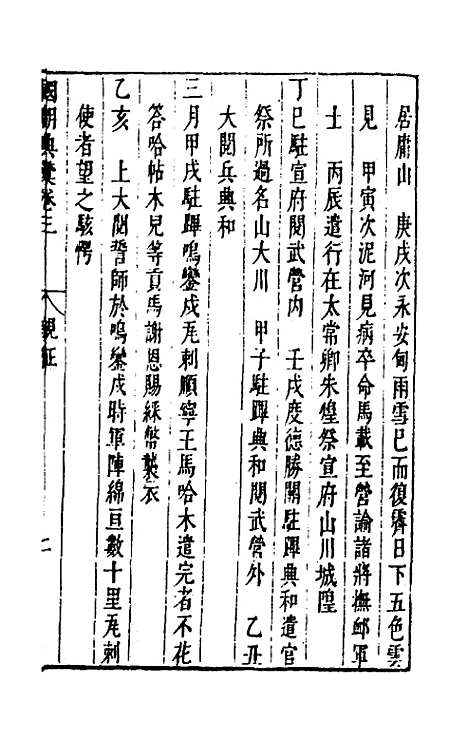 居庸山　庚戌次永安甸雨雪已而復霽日下五色雲
見　甲寅次泥河見病卒命馬載至營諭諸將撫䘏軍
士　丙辰遣行在太常卿朱煌祭宣府山川城隍
丁巳駐宣府閱武營内　壬戌度德勝關駐蹕興和遣官
祭所過名山大川　甲子駐蹕興和閱武營外　乙丑
大閱兵興和
三月甲戌駐蹕鳴鑾戍瓦剌順寧王馬哈木遣完者不花
答哈帖木兒等貢馬謝恩賜綵幣襲衣
乙亥　上大閱誓師於鳴鑾戍時軍陣綿亘數十里瓦剌
使者望之駭愕
國朝典彙卷三
親征
二